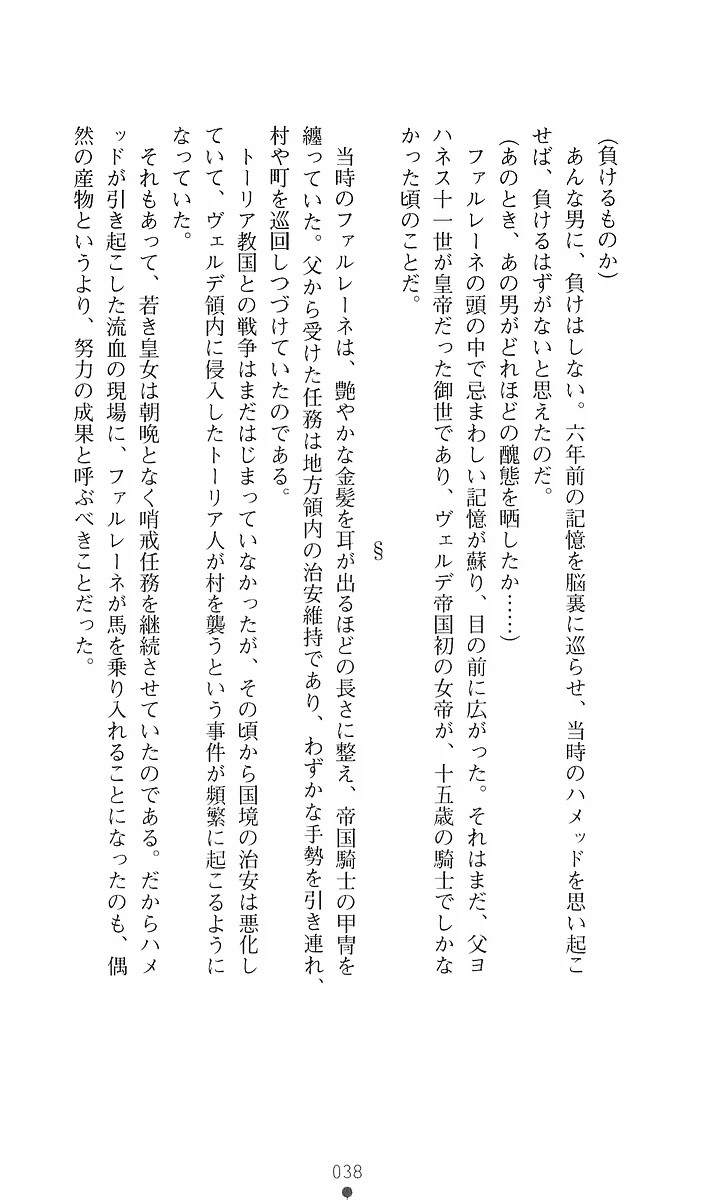 (負けるものか)
あんな男に、負けはしない。六年前の記憶を脳裏に巡らせ、当時のハメッドを思い起こ
せば、負けるはずがないと思えたのだ。
(あのとき、あの男がどれほどの醜態を晒したか……)
ファルレーネの頭の中で忌まわしい記憶が蘇り、目の前に広がった。それはまだ、父ヨ
ハネス十一世が皇帝だった御世であり、ヴェルデ帝国初の女帝が、十五歳の騎士でしかな
かった頃のことだ。
§
当時のファルレーネは、艶やかな金髪を耳が出るほどの長さに整え、帝国騎士の甲冑を
纏っていた。父から受けた任務は地方領内の治安維持であり、わずかな手勢を引き連れ、
村や町を巡回しつづけていたのである。
トーリア教国との戦争はまだはじまっていなかったが、その頃から国境の治安は悪化し
ていて、ヴェルデ領内に侵入したトーリア人が村を襲うという事件が頻繁に起こるように
なっていた。
それもあって、若き皇女は朝晩となく哨戒任務を継続させていたのである。だからハメ
ッドが引き起こした流血の現場に、ファルレーネが馬を乗り入れることになったのも、偶
然の産物というより、努力の成果と呼ぶべきことだった。
038